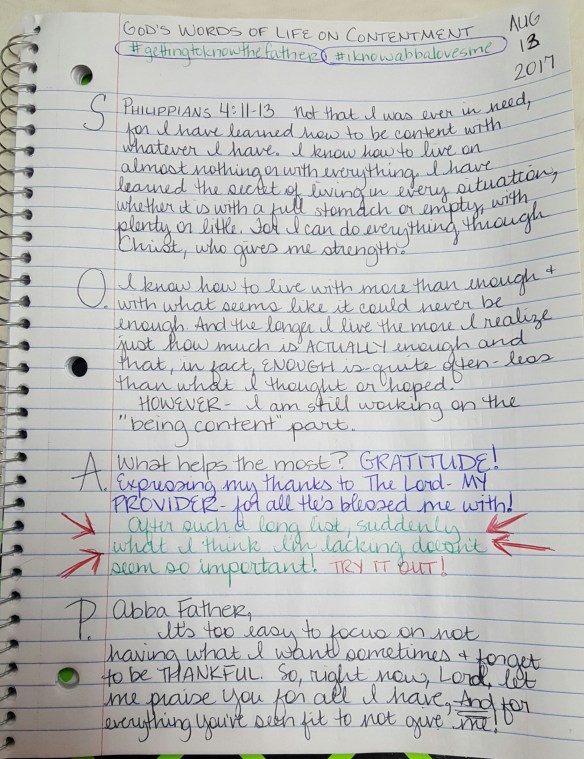 GOD'S WORDS OF LIFE ON CONTENTMENT
#gettingtoknowthefather #iknowabbalovesme
AUG
13
2017
S PHILIPPIANS 4:11-13 Not that I was ever in need,
for I have learned how to be content with
whatever I have. I know how to live on
almost nothing or with everything. I have
learned the secret of living in every situation,
whether it is with a full stomach or empty, with
plenty or little. For I can do everything through
Christ, who gives me strength.
O. I know how to live with more than enough +
with what seems like it could never be
enough. And the longer I live the more I realize
just how much is ACTUALLY enough and
that, in fact, ENOUGH is quite often - less
than what I thought or hoped.
HOWEVER - I am still working on the
"being content" part.
A. What helps the most? GRATITUDE!
Expressing my thanks to The Lord - MY
PROVIDER - for all He's blessed me with!
After such a long list, suddenly
what I think I'm lacking doesn't
seem so important! TRY IT OUT!
P. Abba Father,
It's too easy to focus on not
having what I want sometimes + forget
to be THANKFUL. So, right now, Lord, let
me praise You for all I have, And for
everything You've seen fit to not give me!